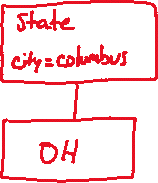 State
city=columbus
OH